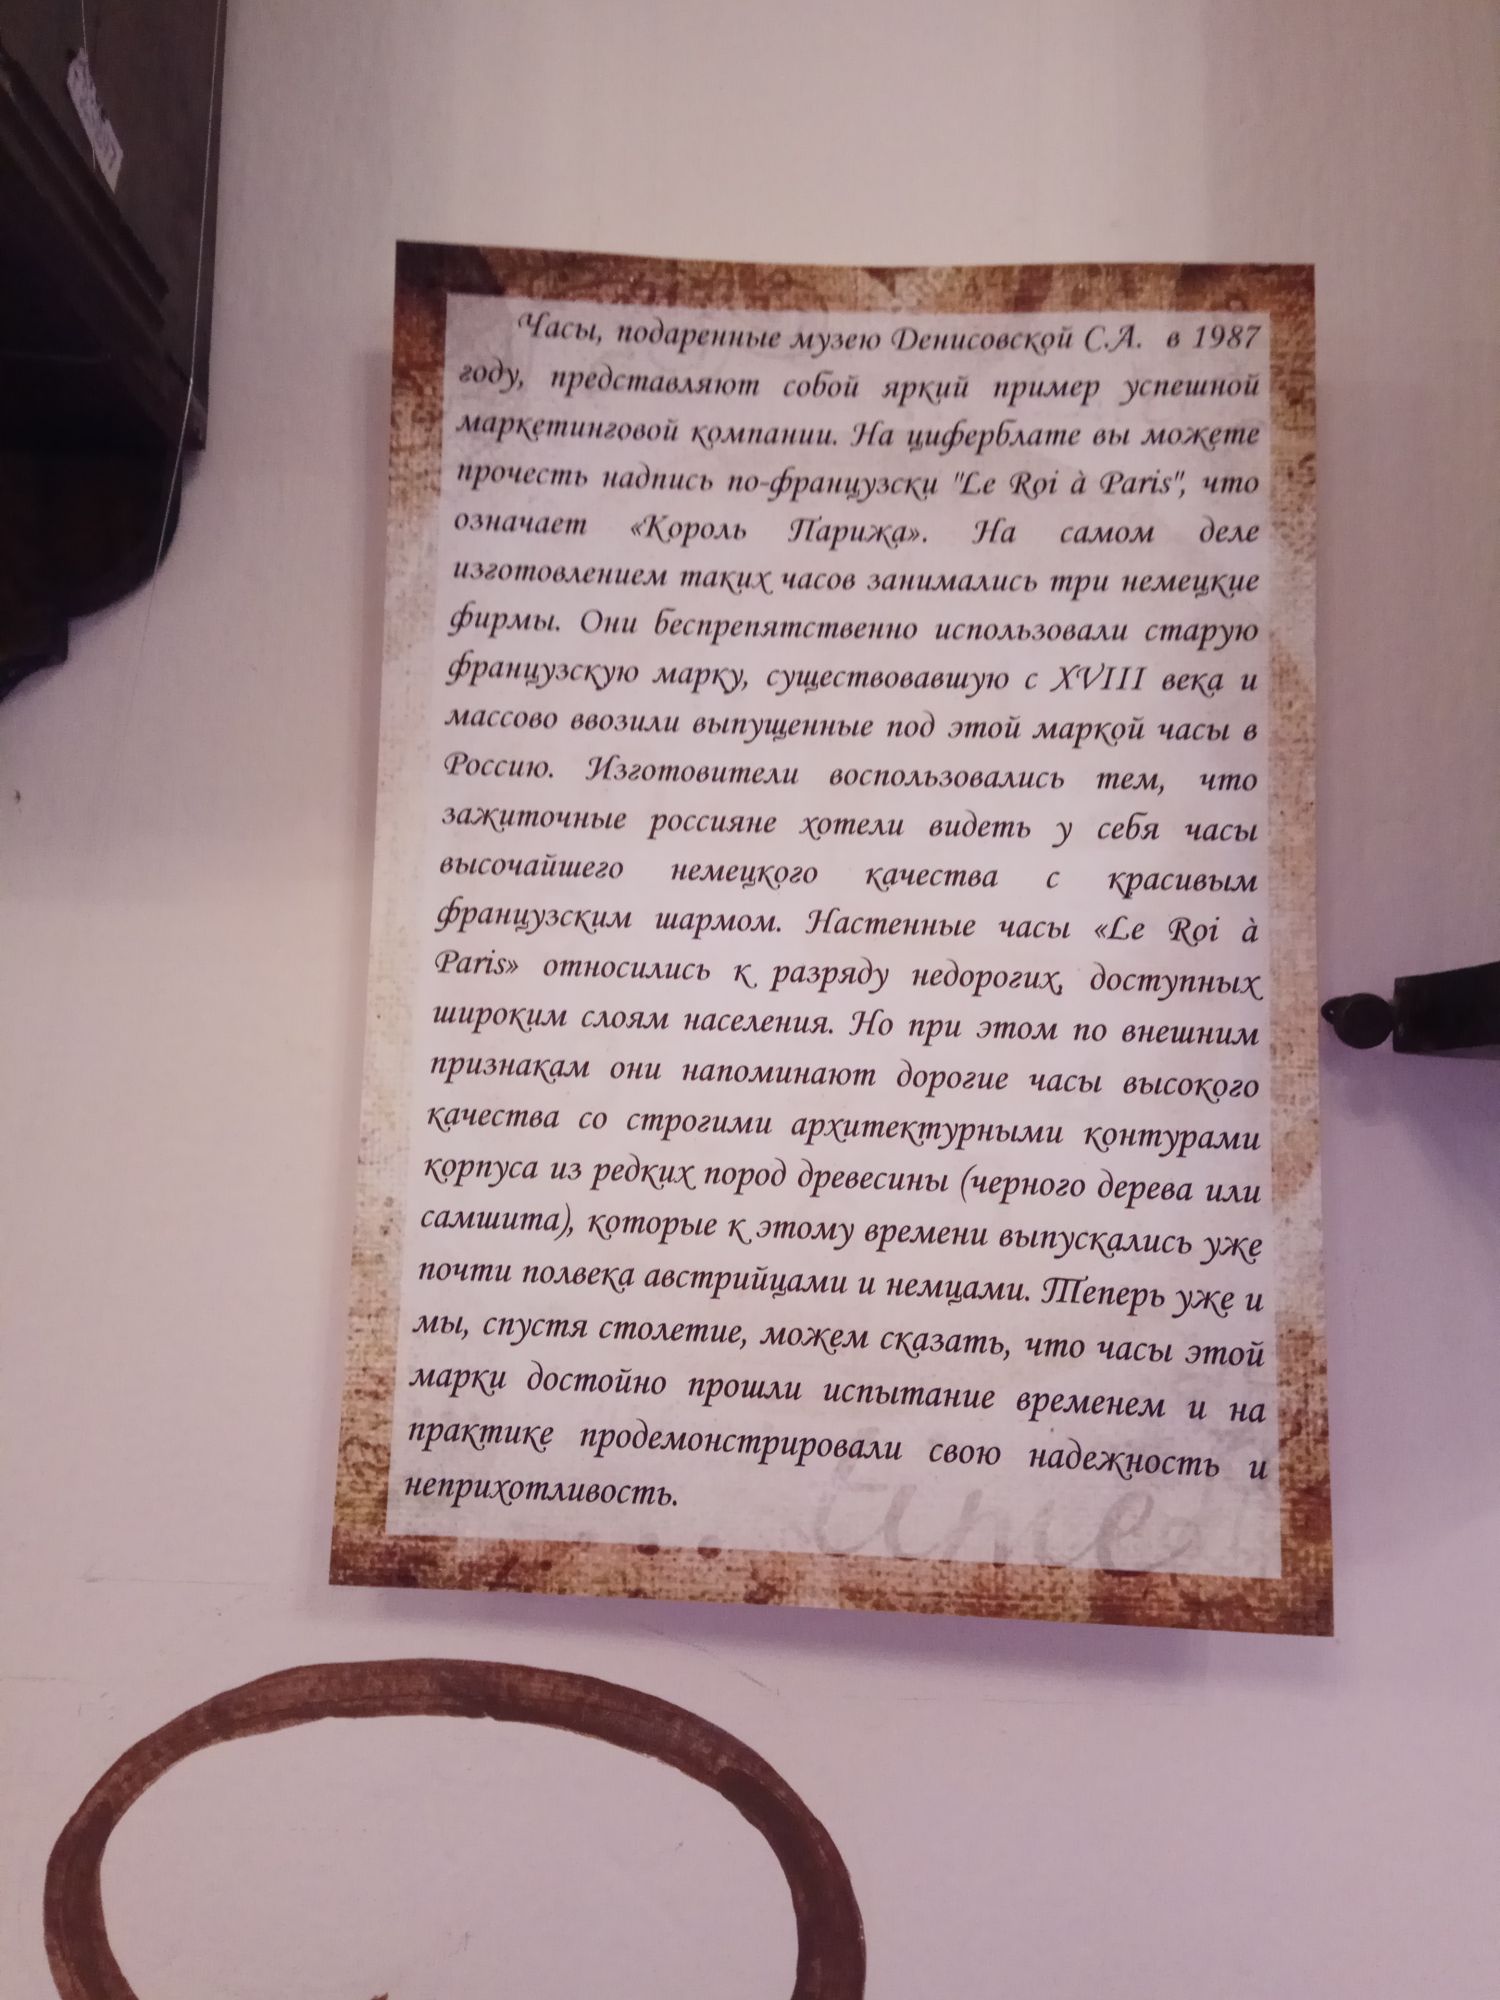 Часы, подаренные музею Денисовской С.А. в 1987
году, представляют собой яркий пример успешной
маркетинговой компании. На циферблате вы можете
прочесть надпись по-французски "Le Roi à Paris", что
означает «Король Парижа». На самом деле
изготовлением таких часов занимались три немецкие
фирмы. Они беспрепятственно использовали старую
французскую марку, существовавшую с XVIII века и
массово ввозили выпущенные под этой маркой часы в
Россию. Изготовители воспользовались тем, что
зажиточные россияне хотели видеть у себя часы
высочайшего немецкого качества с красивым
французским шармом. Настенные часы «Le Roi à
Paris» относились к разряду недорогих, доступных
широким слоям населения. Но при этом по внешним
признакам они напоминают дорогие часы высокого
качества со строгими архитектурными контурами
корпуса из редких пород древесины (черного дерева или
самшита), которые к этому времени выпускались уже
почти полвека австрийцами и немцами. Теперь уже и
мы, спустя столетие, можем сказать, что часы этой
марки достойно прошли испытание временем и на
практике продемонстрировали свою надежность и
неприхотливость.